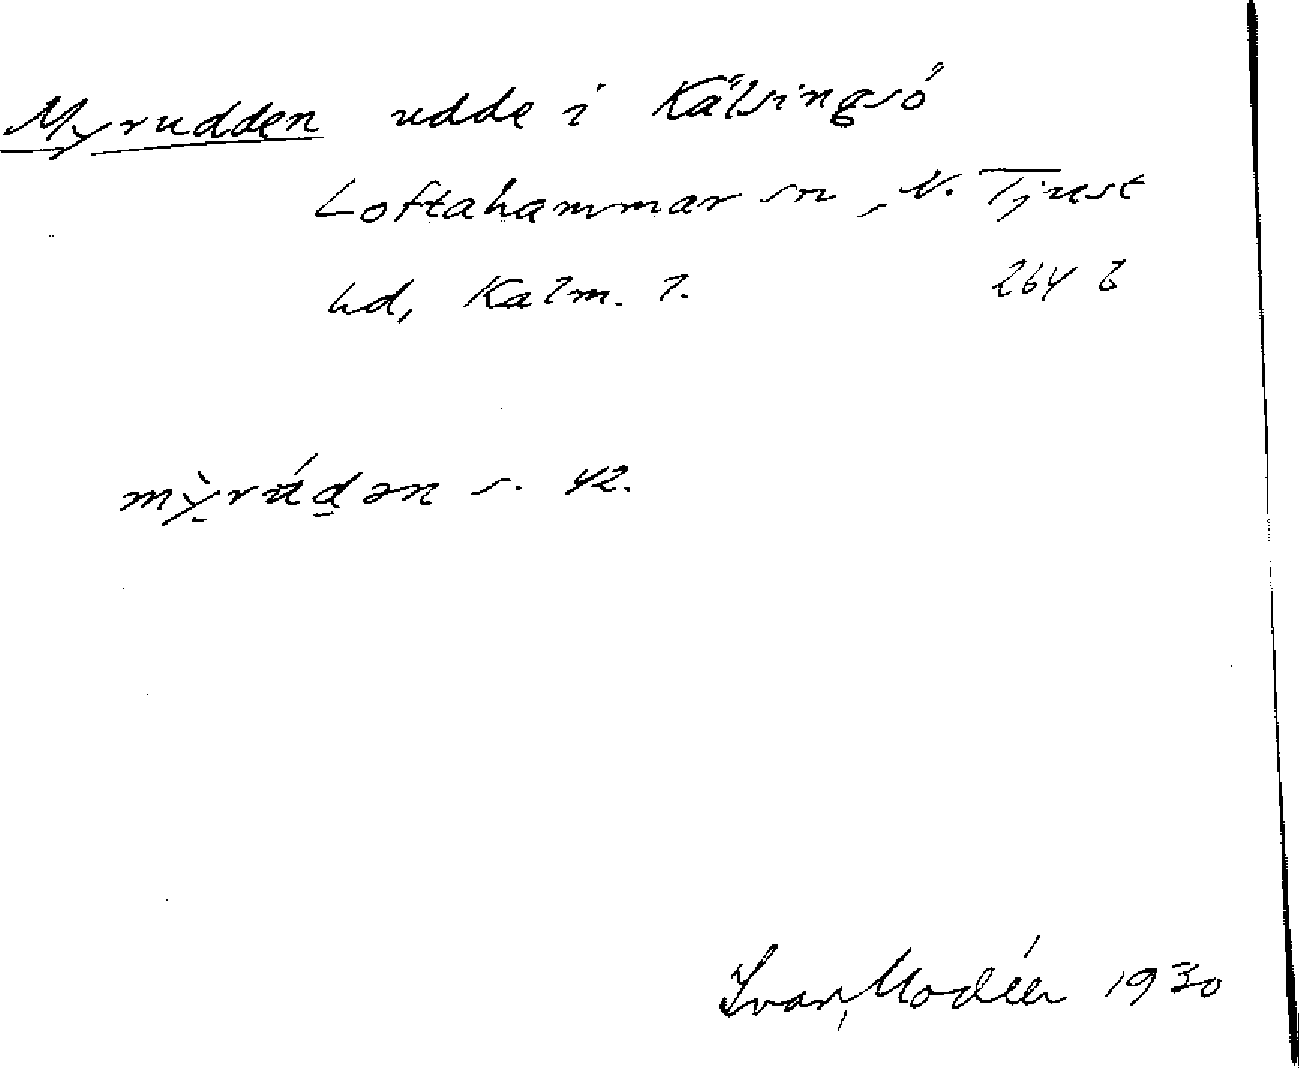 Myrudden udde i Kälsingsö
Loftahammar sn, N. Tjust
hd, Kalm. l. 264 b
mỳ̱rúd̲ən s. 42.
Ivar Modéer 1930